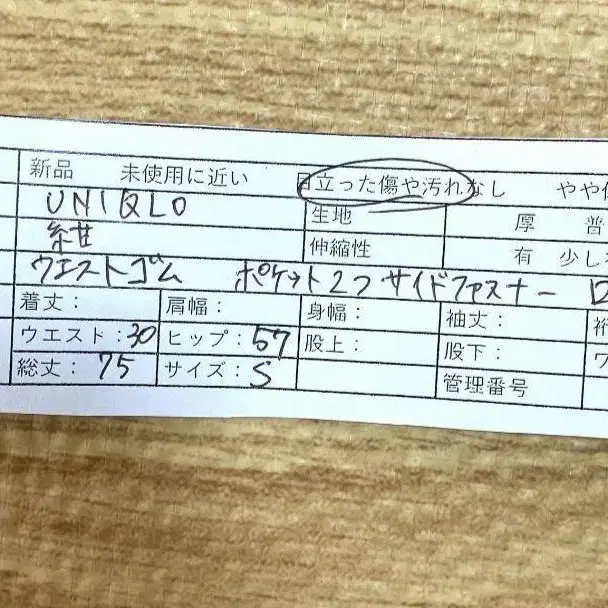 新品 未使用に近い 目立った傷や汚れなし やや
UNIQLO 生地 厚 普
紺 伸縮性 有 少し
ウエストゴム ポケット2つ サイドファスナー
着丈： 肩幅： 身幅： 袖丈： 裄
ウエスト：30 ヒップ：57 股上： 股下： ワ
総丈：75 サイズ：S 管理番号